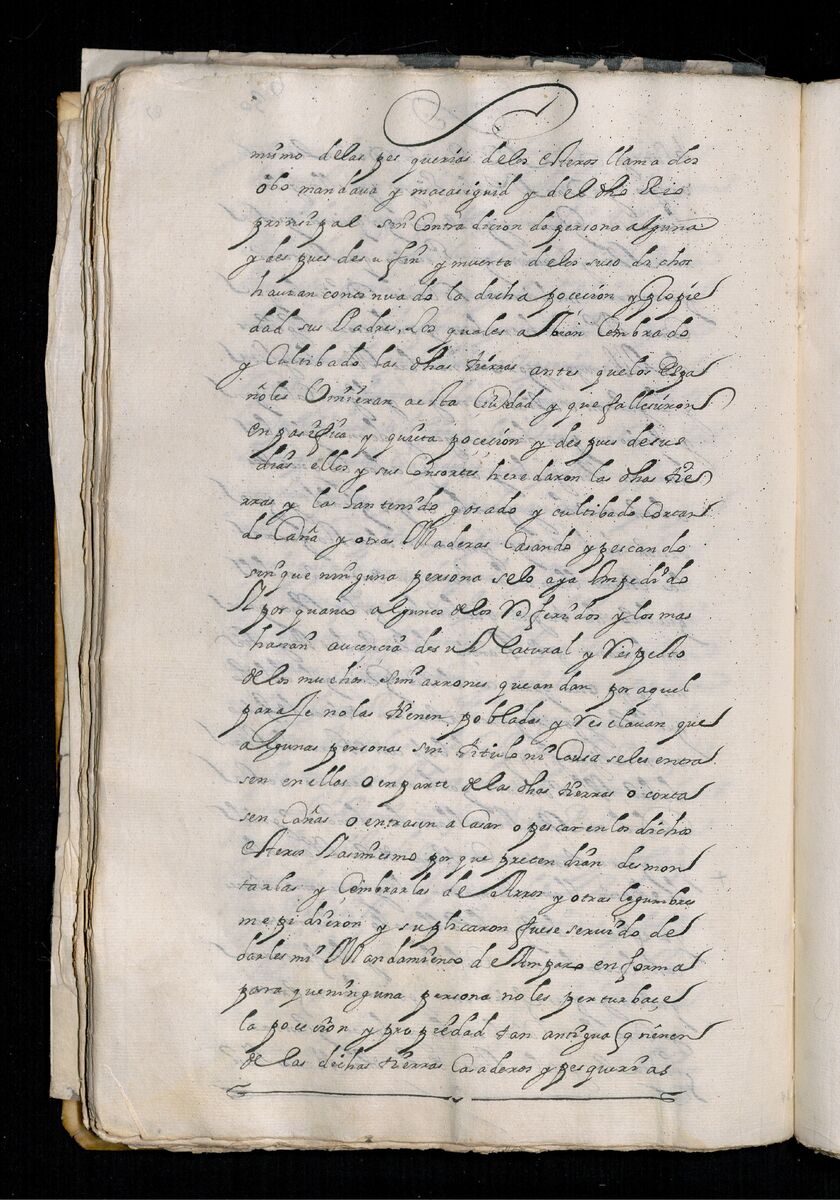 mismo delas pesquerias delos esteros llamados
obo mandava y macasiguid y del dho Rio
prinsipal sin Contradicion de persona alguna
y despues de su fin y muerte delos suso dichos
hauian continuado la dicha poceción y propie
dad sus Padres, los quales assian Cembrado
y Cultibado las dhas tierras antes que los Espa
ñoles Vinieran a esta Ciudad y que fallesieron
en pasifica y quieta poceción y despues de sus
dias ellos y sus Consortes, heredaron las dhas tie
rras y las han tenido gosado y cultibado cortan
do Caña y otras Maderas Casando y pescando
sin que ninguna persona selo aya Impedido
Y por quanto algunos delos Referidos y los mas
hasian aucencia de su Natural y Respecto
delos muchos Simarrones que andan por aquel
paraJe no las tienen pobladas y Reselauan que
algunas personas sin titulo ni Causa seles entra
sen en ellas o en parte de las dhas tierras o corta
sen Cañas o entrasen a Casar o pescar en los dichos
esteros Y asimesmo por que pretendian desmon
tarlas y Cembrarlas de Arros y otras legumbres
me pidieron y suplicaron fuese seruido de
darles mi Mandamiento de Amparo en forma
para que ninguna persona no les perturbaçe
la poceción y propiedad tan antigua q tienen
de las dichas tierras Casaderos y pesquerias